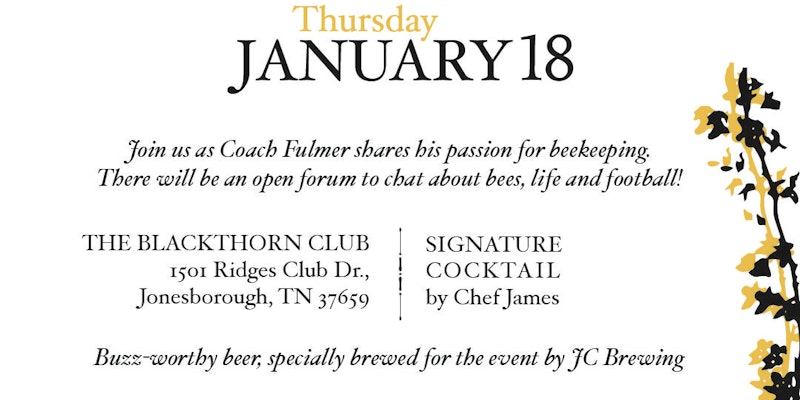 Thursday
JANUARY 18
Join us as Coach Fulmer shares his passion for beekeeping.
There will be an open forum to chat about bees, life and football!
THE BLACKTHORN CLUB
1501 Ridges Club Dr.,
Jonesborough, TN 37659
SIGNATURE
COCKTAIL
by Chef James
Buzz-worthy beer, specially brewed for the event by JC Brewing